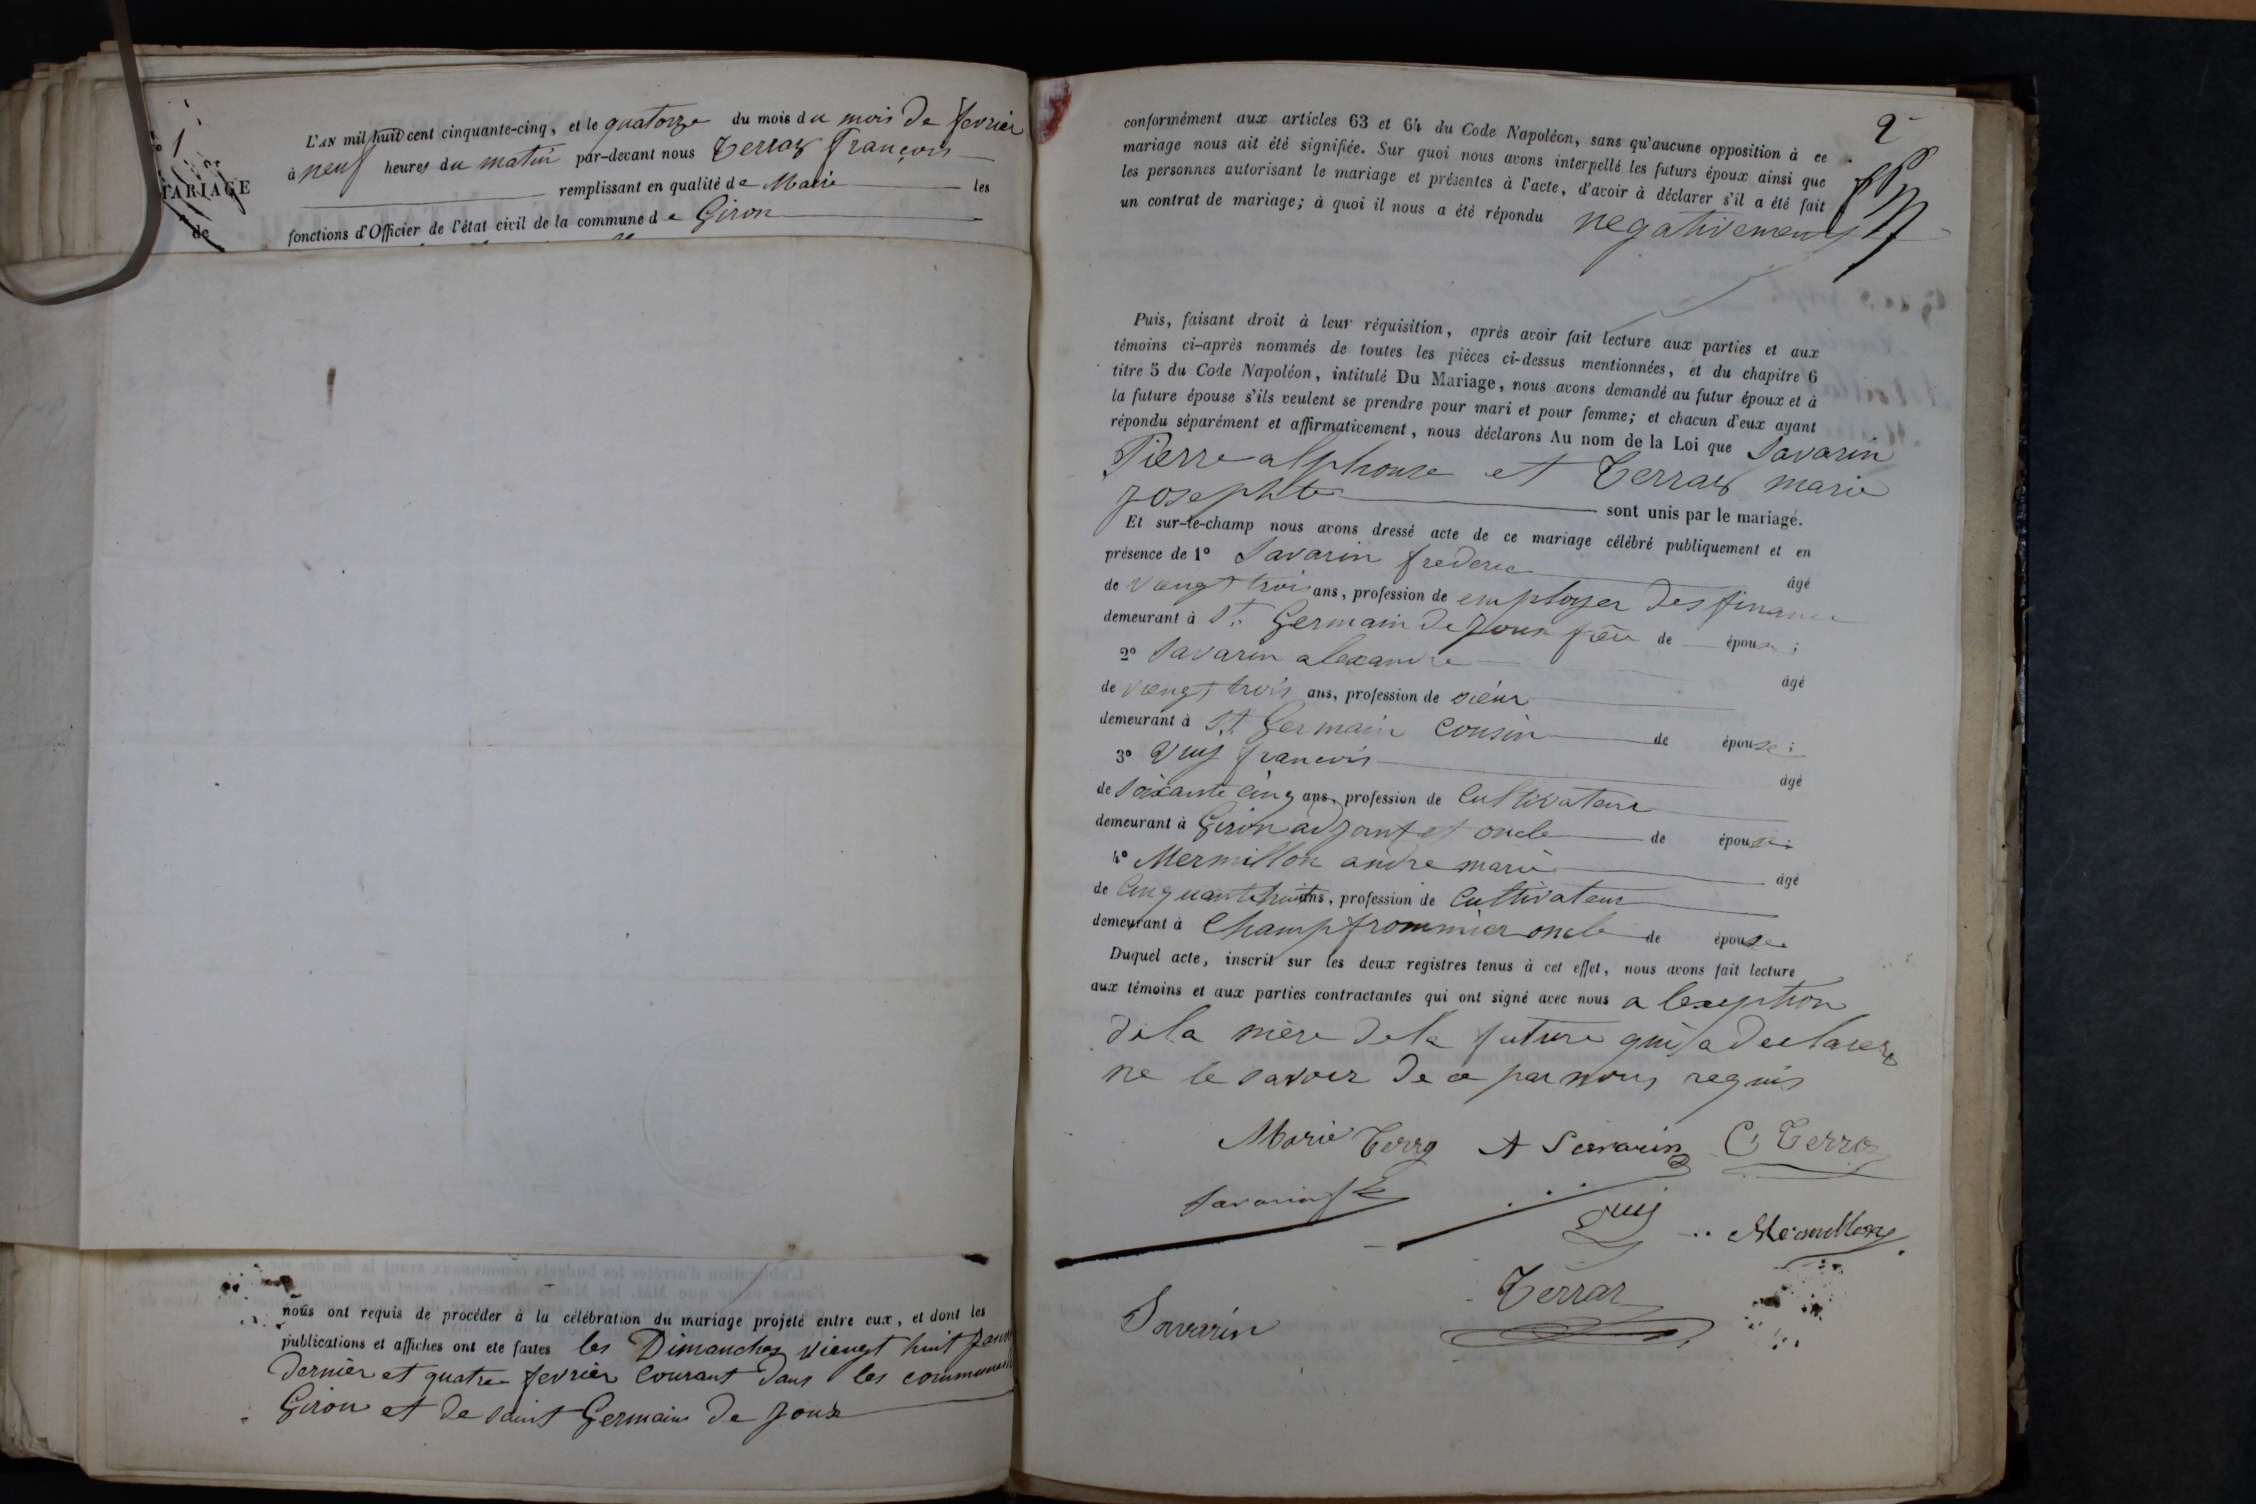 1
MARIAGE
de
L'AN mil huit cent cinquante-cinq, et le quatorze du mois du mois de fevrier
à neuf heures du matin par-devant nous Terraz François
remplissant en qualité de Maire les
fonctions d'Officier de l'état civil de la commune de Giron
nous ont requis de procéder à la célébration du mariage projeté entre eux, et dont les
publications et affiches ont été faites les Dimanches viengt huit
dernier et quatre fevrier Courant dans les communes
Giron et de saint Germain de Joux
2
conformément aux articles 63 et 64 du Code Napoléon, sans qu'aucune opposition à ce
mariage nous ait été signifiée. Sur quoi nous avons interpellé les futurs époux ainsi que
les personnes autorisant le mariage et présentes à l'acte, d'avoir à déclarer s'il a été fait
un contrat de mariage; à quoi il nous a été répondu negativement
Puis, faisant droit à leur réquisition, après avoir fait lecture aux parties et aux
témoins ci-après nommés de toutes les pièces ci-dessus mentionnées, et du chapitre 6
titre 5 du Code Napoléon, intitulé Du Mariage, nous avons demandé au futur époux et à
la future épouse s'ils veulent se prendre pour mari et pour femme; et chacun d'eux ayant
répondu séparément et affirmativement, nous déclarons Au nom de la Loi que Savarin
Pierre alphonse et Terraz marie
josephte sont unis par le mariage.
Et sur-le-champ nous avons dressé acte de ce mariage célébré publiquement et en
présence de 1° Savarin frederic âgé
de viengt trois ans, profession de employer des finance
demeurant à St. Germain de Joux de épouse;
2° Savarin alexandre âgé
de viengt trois ans, profession de sieur
demeurant à St Germain Cousin de épouse;
3° françois âgé
de soixante cinq ans, profession de Cultivateur
demeurant à Giron adjoint et oncle de épouse;
4° Mermillon andre marie âgé
de Cinquante huit ans, profession de Cultivateur
demeurant à Champfrommier oncle de épouse.
Duquel acte, inscrit sur les deux registres tenus à cet effet, nous avons fait lecture
aux témoins et aux parties contractantes qui ont signé avec nous a lexeption
de la mère de la future qui a declarer
ne le savoir de ce par nous requis
Marie Terraz A Savarin Terraz
Savarin
Mermillon
Terraz
Savarin